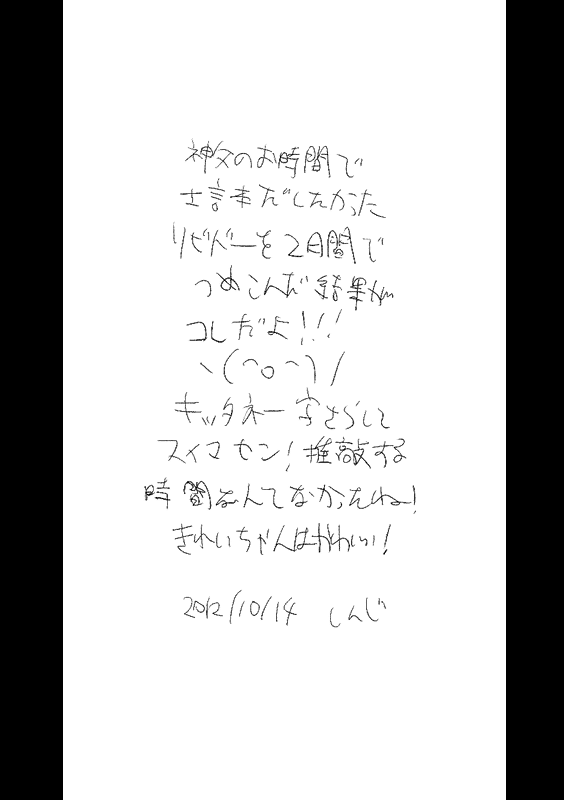 神父のお時間で
士言本だしたかった
リビドーを2日間で
つめこんだ結果が
コレだよ!!!
ヽ(^o^)/
キッタネー字さらして
スイマセン!推敲する
時間なんてなかったわ!
きれいちゃんはかわいい!
2012/10/14 しんじ